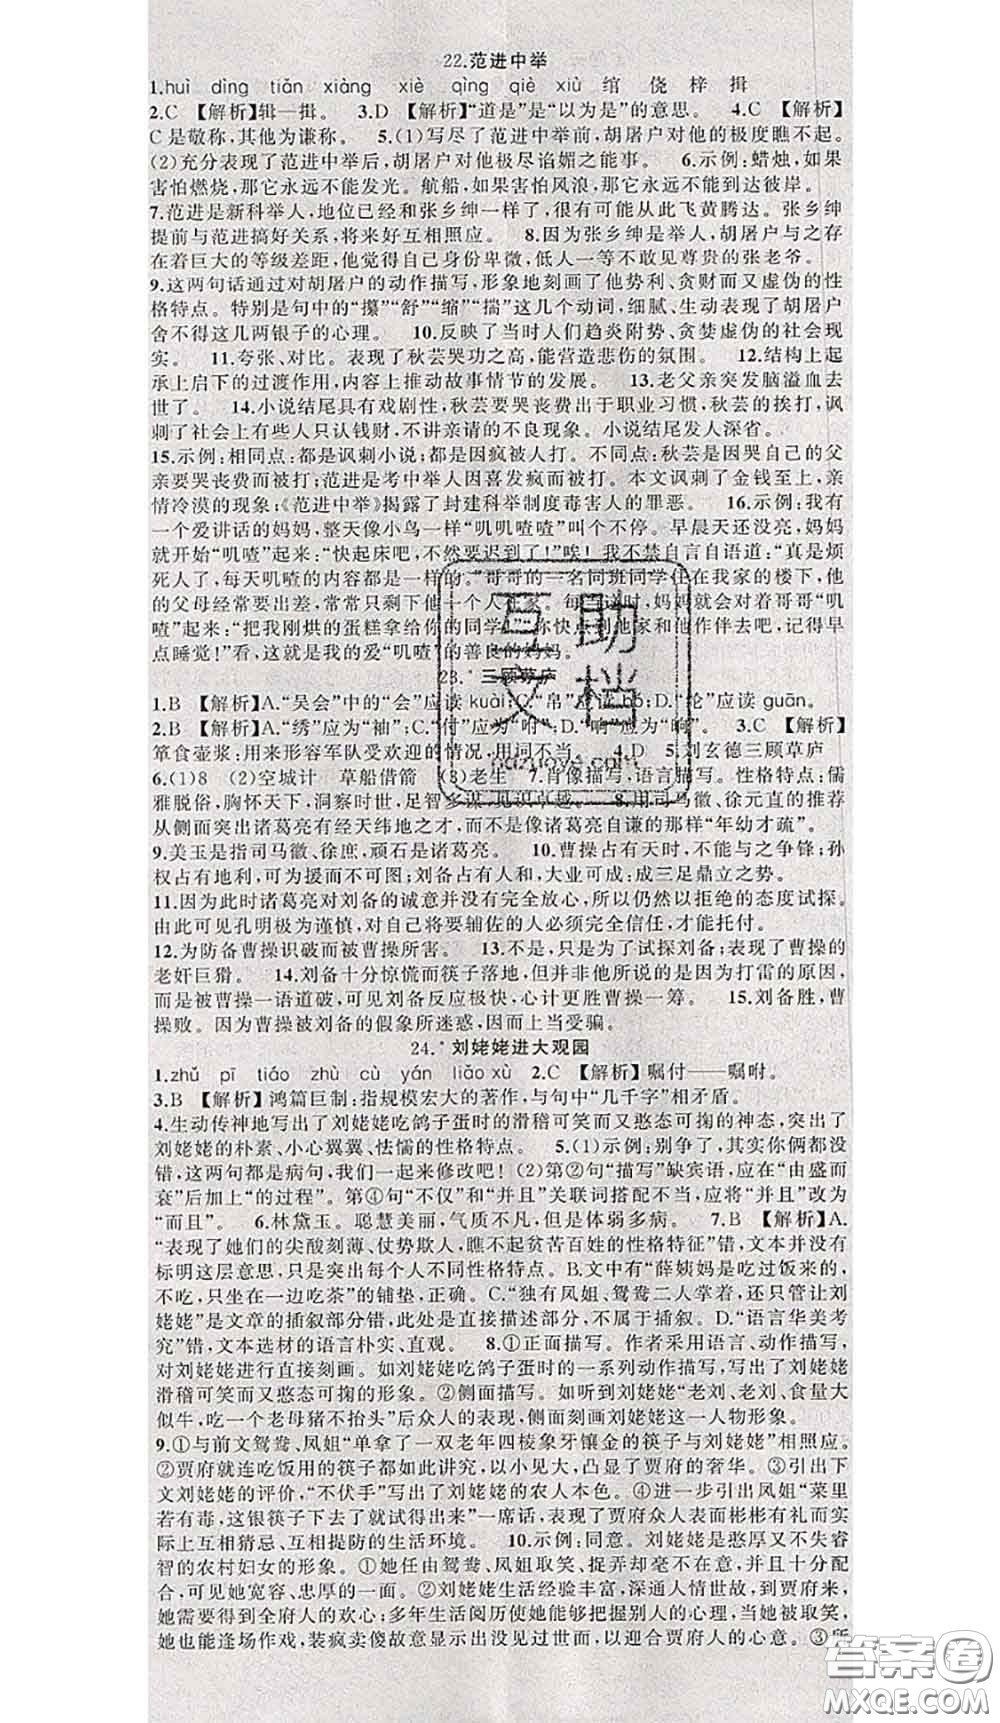 22.范进中举
1.huì dìng tiǎn xiàng xiè qìng qiè xiù 绾 侥 梓 揖
2.C 【解析】辑—揖。 3.D 【解析】“道是”是“以为是”的意思。 4.C 【解析】
C是敬称,其他为谦称。 5.(1)写尽了范进中举前,胡屠户对他的极度瞧不起。
(2)充分表现了范进中举后,胡屠户对他极尽谄媚之能事。 6.示例:蜡烛,如果
害怕燃烧,那它永远不能发光。航船,如果害怕风浪,那它永远不能到达彼岸。
7.范进是新科举人,地位已经和张乡绅一样了,很有可能从此飞黄腾达。张乡绅
提前与范进搞好关系,将来好互相照应。 8.因为张乡绅是举人,胡屠户与之存
在着巨大的等级差距,他觉得自己身份卑微,低人一等不敢见尊贵的张老爷。
9.这两句话通过对胡屠户的动作描写,形象地刻画了他势利、贪财而又虚伪的性
格特点。特别是句中的“攥”“舒”“缩”“揣”这几个动词,细腻、生动表现了胡屠户
舍不得这几两银子的心理。 10.反映了当时人们趋炎附势、贪婪虚伪的社会现
实。 11.夸张、对比。表现了秋芸哭功之高,能营造悲伤的氛围。 12.结构上起
承上启下的过渡作用,内容上推动故事情节的发展。 13.老父亲突发脑溢血去
世了。 14.小说结尾具有戏剧性,秋芸要哭丧费出于职业习惯,秋芸的挨打,讽
刺了社会上有些人只认钱财,不讲亲请的不良现象。小说结尾发人深省。
15.示例:相同点:都是讽刺小说;都是因疯被人打。不同点:秋芸是因哭自己的父
亲要哭丧费而被打;范进是考中举人因喜发疯而被打。本文讽刺了金钱至上,亲
情冷漠的现象;《范进中举》揭露了封建科举制度毒害人的罪恶。 16.示例:我有
一个爱讲话的妈妈,整天像小鸟一样“叽叽喳喳”叫个不停。早晨天还没亮,妈妈
就开始“叽喳”起来:“快起床吧,不然要迟到了!”唉!我不禁自言自语道:“真是烦
死人了,每天叽喳的内容都是一样的。”哥哥的一名同班同学住在我家的楼下,他
的父母经常要出差,常常只剩下他一个人在家。每当这时,妈妈就会对着哥哥“叽
喳”起来:“把我刚烘的蛋糕拿给你的同学!”“你快点到他家和他作伴去吧,记得早
点睡觉!”看,这就是我的爱“叽喳”的善良的妈妈。
23.*三顾茅庐
1.B 【解析】A.“吴会”中的“会”应读kuài;C.“帛”应读bó;D.“纶”应读guān。
2.B 【解析】A.“绣”应为“袖”;C.“付”应为“咐”;D.“响”应为“晌”。 3.C 【解析】
箪食壶浆:用来形容军队受欢迎的情况,用词不当。 4.D 5.刘玄德三顾草庐
6.(1)8 (2)空城计 草船借箭 (3)老生 7.肖像描写,语言描写。性格特点:儒
雅脱俗,胸怀天下,洞察时世,足智多谋,见识卓越。 8.用司马徽、徐元直的推荐
从侧面突出诸葛亮有经天纬地之才,而不是像诸葛亮自谦的那样“年幼才疏”。
9.美玉是指司马徽、徐庶,顽石是诸葛亮。 10.曹操占有天时,不能与之争锋;孙
权占有地利,可为援而不可图;刘备占有人和,大业可成;成三足鼎立之势。
11.因为此时诸葛亮对刘备的诚意并没有完全放心,所以仍然以拒绝的态度试探。
由此可见孔明极为谨慎,对自己将要辅佐的人必须完全信任,才能托付。
12.为防备曹操识破而被曹操所害。 13.不是,只是为了试探刘备;表现了曹操的
老奸巨猾。 14.刘备十分惊慌而筷子落地,但并非他所说的是因为打雷的原因,
而是被曹操一语道破,可见刘备反应极快,心计更胜曹操一筹。 15.刘备胜,曹
操败。因为曹操被刘备的假象所迷惑,因而上当受骗。
24.*刘姥姥进大观园
1.zhǔ pī tiáo zhù cù yán liǎo xù 2.C 【解析】嘱付——嘱咐。
3.B 【解析】鸿篇巨制:指规模宏大的著作,与句中“几千字”相矛盾。
4.生动传神地写出了刘姥姥吃鸽子蛋时的滑稽可笑而又憨态可掬的神态,突出了
刘姥姥的朴素、小心翼翼、怯懦的性格特点。 5.(1)示例:别争了,其实你俩都没
错,这两句都是病句,我们一起来修改吧!(2)第②句“描写”缺宾语,应在“由盛而
衰”后加上“的过程”。第④句“不仅”和“并且”关联词搭配不当,应将“并且”改为
“而且”。 6.林黛玉。聪慧美丽,气质不凡,但是体弱多病。 7.B 【解析】A.
“表现了她们的尖酸刻薄、仗势欺人,瞧不起贫苦百姓的性格特征”错,文本并没有
标明这层意思,只是突出每个人不同性格特点。B.文中有“薛姨妈是吃过饭来的,
不吃,只坐在一边吃茶”的铺垫,正确。C.“独有凤姐、鸳鸯二人掌着,还只管让刘
姥姥”是文章的插叙部分错,此处是直接描述部分,不属于插叙。D.“语言华美考
究”错,文本选材的语言朴实、直观。 8.①正面描写。作者采用语言、动作描写,
对刘姥姥进行直接刻画。如刘姥姥吃鸽子蛋时的一系列动作描写,写出了刘姥姥
滑稽可笑而又憨态可掬的形象。②侧面描写。如听到刘姥姥“老刘、老刘、食量大
似牛,吃一个老母猪不抬头”后众人的表现,侧面刻画刘姥姥这一人物形象。
9.①与前文鸳鸯、凤姐“单拿了一双老年四楞象牙镶金的筷子与刘姥姥”相照应。
②贾府就连吃饭用的筷子都如此讲究,以小见大,凸显了贾府的奢华。③引出下
文刘姥姥的评价,“不伏手”写出了刘姥姥的农人本色。④进一步引出凤姐“菜里
若有毒,这银筷子下去了就试得出来”一席话,表现了贾府众人表面彬彬有礼而实
际上互相猜忌、互相提防的生活环境。 10.示例:同意。刘姥姥是憨厚又不失睿
智的农村妇女的形象。①她任由鸳鸯、凤姐取笑、捉弄却毫不在意,并且十分配
合,可见她宽容、忠厚的一面。②刘姥姥生活经验丰富,深通人情世故,到贾府来,
她需要得到全府人的欢心;多年生活阅历使她能够把握别人的心理,当她被取笑,
她也能逢场作戏,装疯卖傻故意显示出没见过世面,以迎合贾府人的心意。③所
互助
文档
hdzuoye.com
答案圈
MXQE.COM